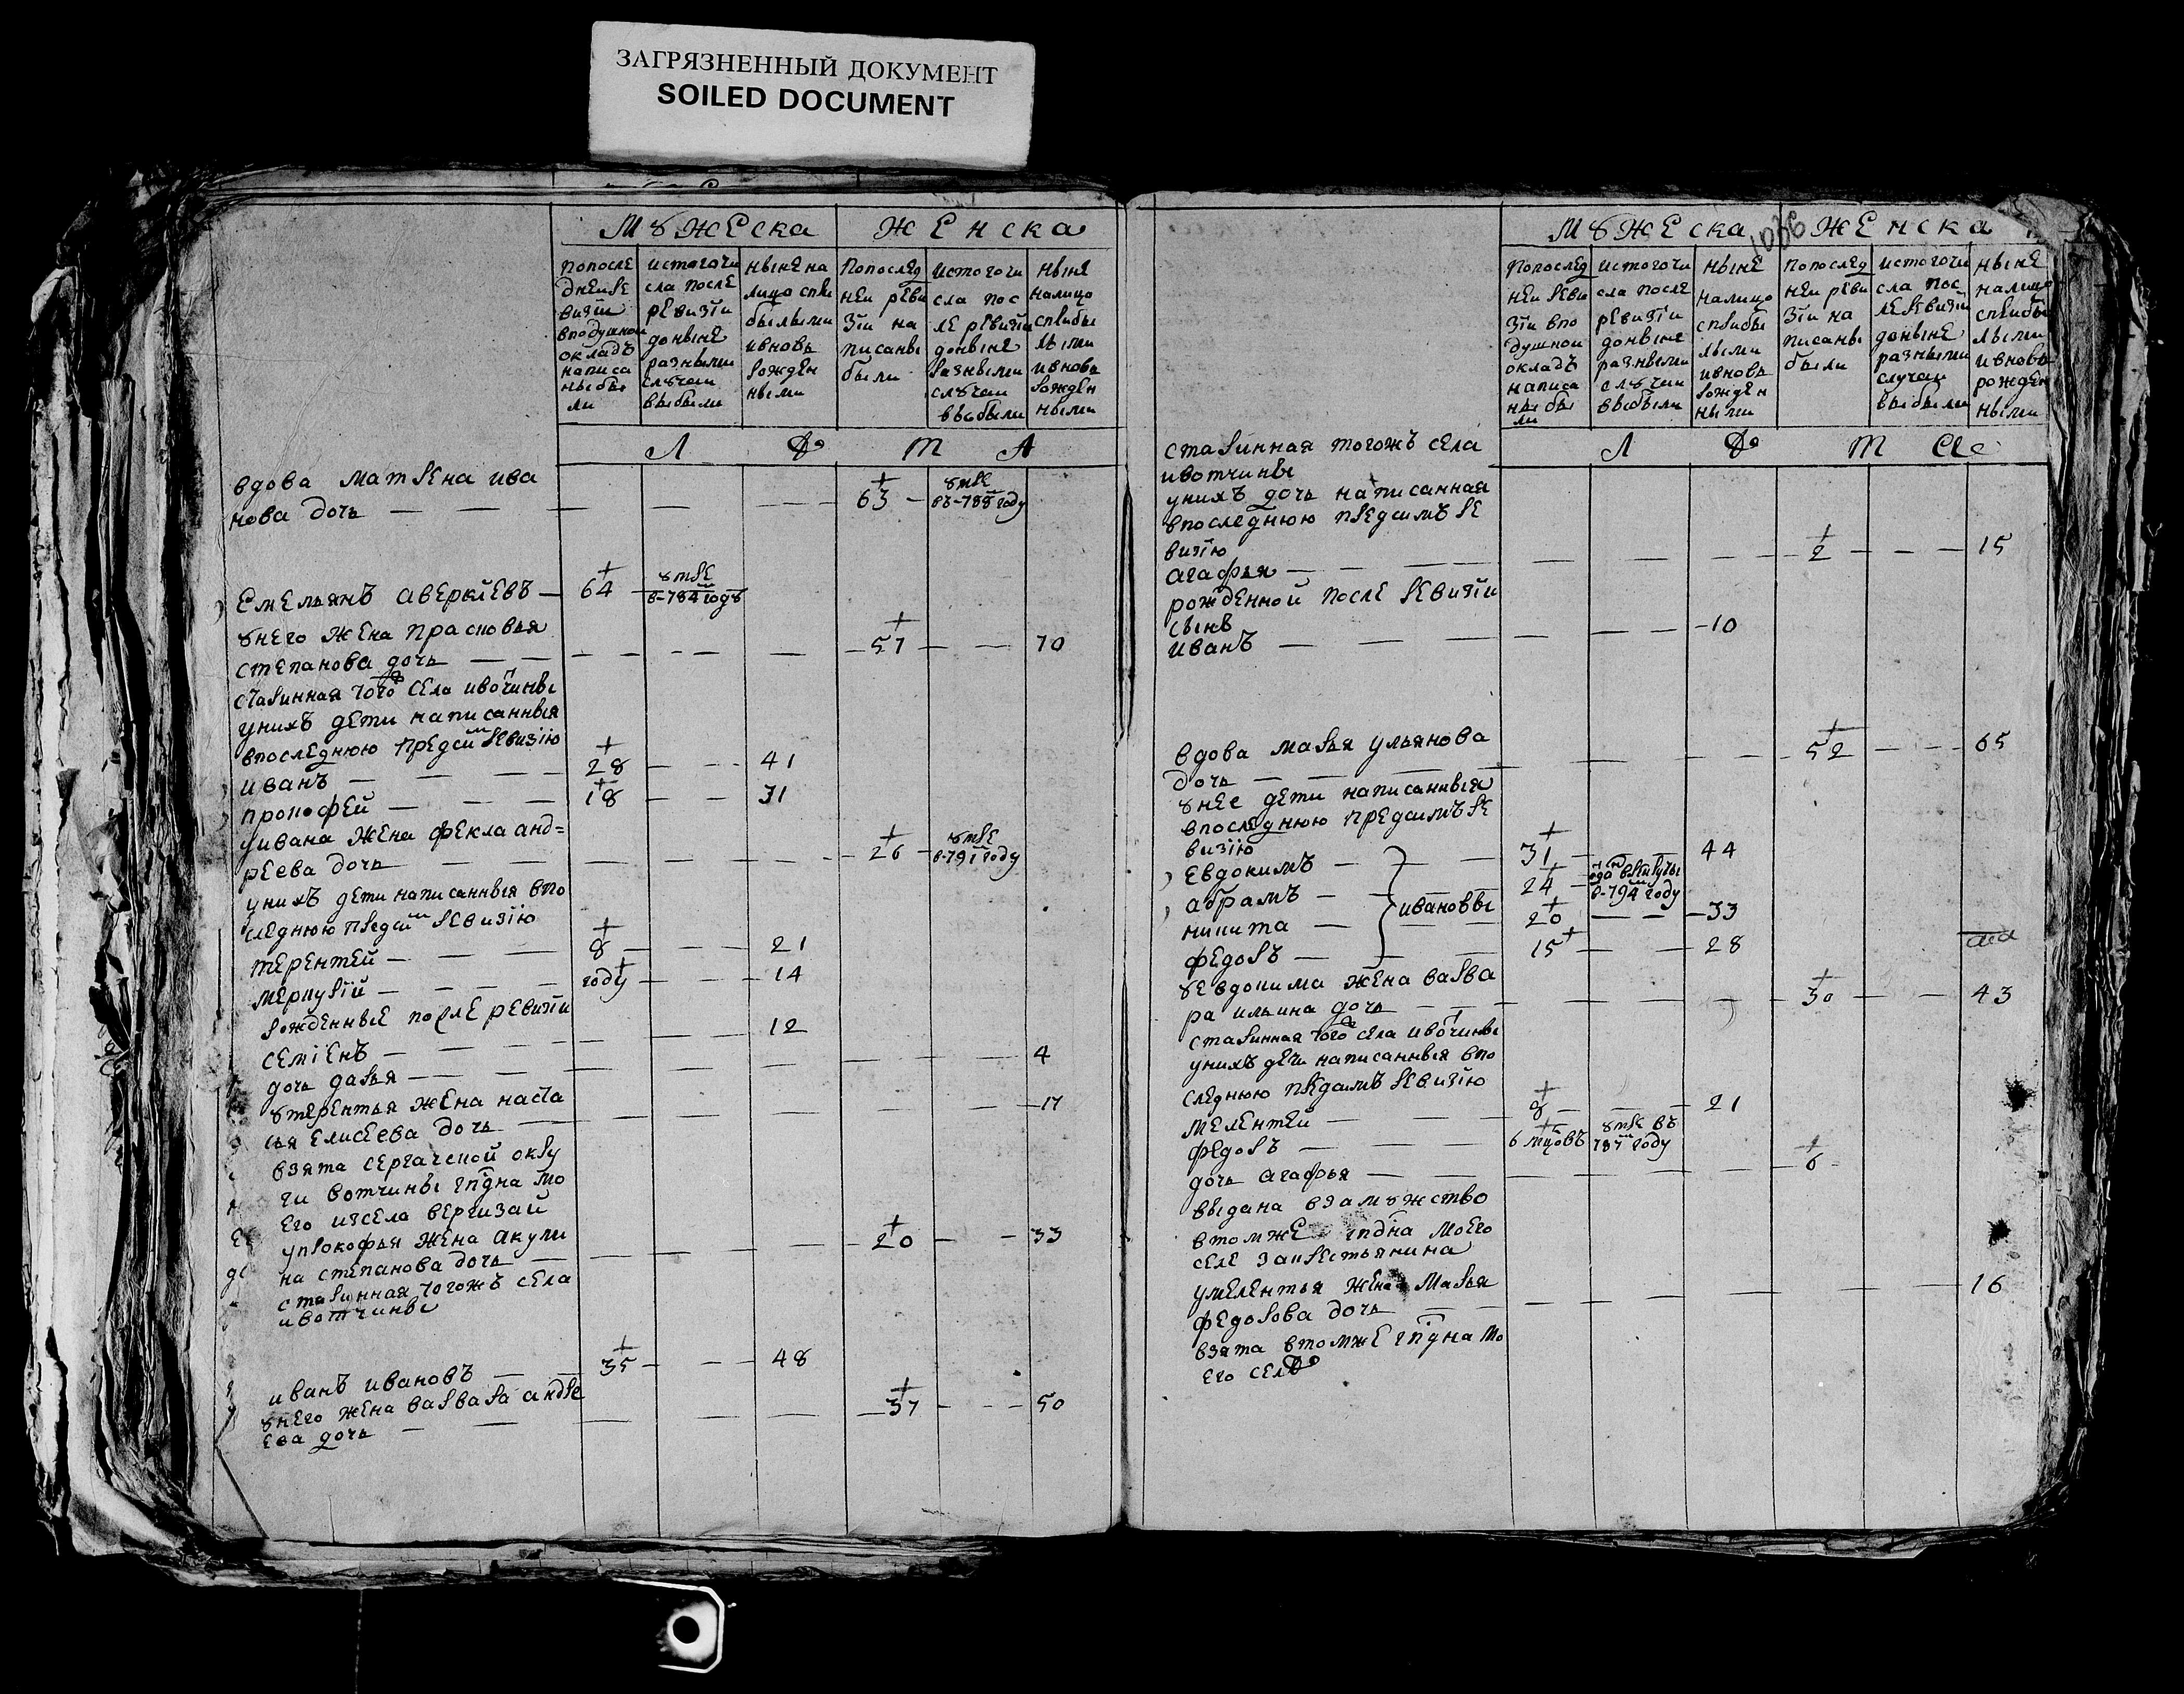 ЗАГРЯЗНЕННЫЙ ДОКУМЕНТ
SOILED DOCUMENT
Мꙋжеска Женска
попосле днеи ре визiи вподушнои окладъ написа ны бы ли
истогочи сла после ревизiи доныне разными слꙋчаи выбыли
ныне на лицо спри былыми ивновь рожден ными
Попослед неи реви зiи на писаны были
истогочи сла пос ле ревизiи доныне разными слꙋчаи выбыли
ныне налицо сприбы лыми ивновь рожден ными
Л Ѣ Т А
вдова матрена ива
нова дочь — 63 — ꙋмре въ-788 году
Емельянъ аверкiевъ — 64 — ꙋмре в-784м годꙋ
ꙋнего жена прасковья
степанова дочь — 57 — 70
старинная тогож села ивотчины
унихъ дети написанныя
впоследнюю предсим ревизiю
иванъ — 28 — 41
прокофей — 18 — 31
уивана жена фекла анд=
реева дочь — 26 — ꙋмре в-791м году
унихъ дети написанныя впо
следнюю предсим ревизiю
терентей — 8 — 21
меркурiй — году — 14
рожденные после ревизiи
семiенъ — 12
дочь дарья — 4
ꙋтерентья жена наста
сья елисеева дочь — 17
взята сергачской окру
ги вотчины гпдна мо
его изсела вергизай
упрокофья жена акули
на степанова дочь — 20 — 33
старинная тогожъ села
ивотчины
иванъ ивановъ — 35 — 48
ꙋнего жена варвара андре
ева дочь — 37 — 50
1036
Мꙋжеска Женска
Попослед неи реви зiи впо душнои окладъ написа ны бы ли
истогочи сла после ревизiи доныне разными слꙋчаи выбыли
ныне налицо сприбы лыми ивновь рожден ными
Попослед неи реви зiи на писаны были
истогочи сла пос ле ревизiи доныне разными случаи выбыли
ныне налицо сприбы лыми ивновь рожден ными
Л Ѣ Т А
старинная тогожъ села
ивотчины
унихъ дочь написанная
впоследнюю предсимъ ре
визiю
агафья — 2 — 15
рожденной после ревизiи
сынъ
иванъ — 10
вдова марья ульянова
дочь — 52 — 65
ꙋнее дети написанныя
впоследнюю предсимъ ре
визiю
евдокимъ — 31 — 44
абрамъ — ивановы 24 — рекруты в-794м году
никита — 20 — 33
федоръ — 15 — 28
ꙋевдокима жена варва
ра ильина дочь — 30 — 43
старинная тогож села ивотчины
унихъ дети написанныя впо
следнюю предсимъ ревизiю
мелентей — 8 — 21
федоръ — 6 мцовъ ꙋмре въ 787м году
дочь агафья — 6
выдана взамꙋжство
втомже гпдна моего
селе закрестьянина
умелентья жена марья
федорова дочь — 16
взята втомже гпдна мо
его селѣ